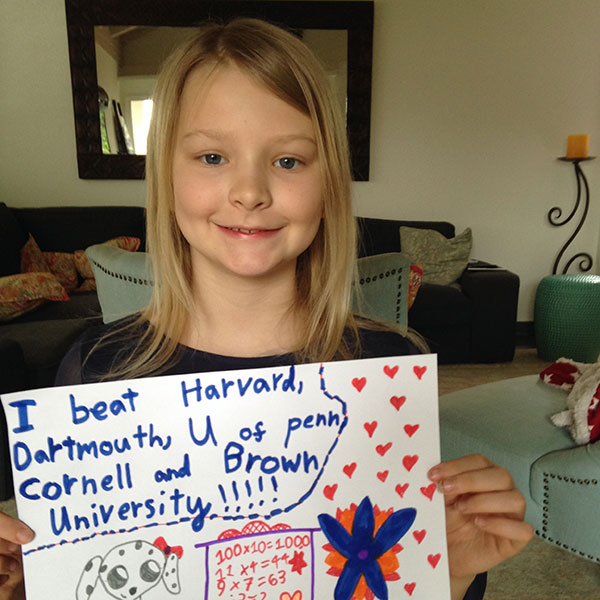 I beat Harvard,
Dartmouth, U of penn,
Cornell and Brown
University!!!!!
100x10=1000
12 x4=44
9 x7=63